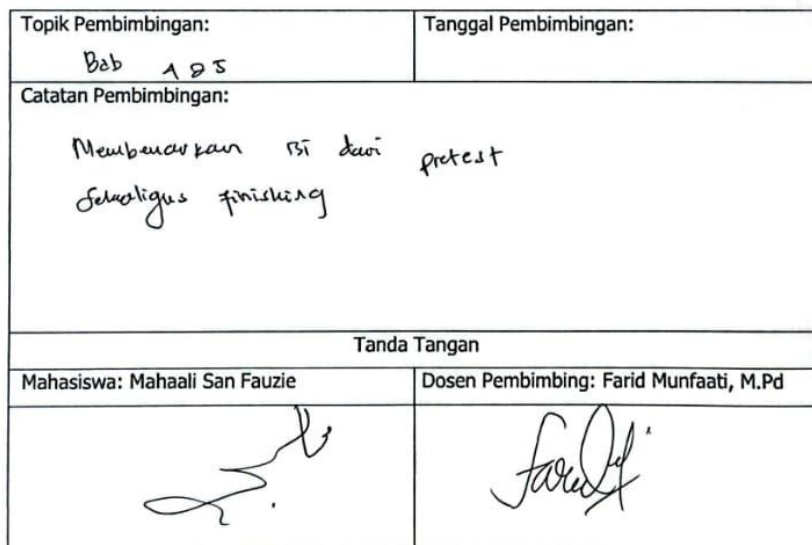 Topik Pembimbingan:
Tanggal Pembimbingan:
Bab 1 8 5
Catatan Pembimbingan:
Membenarkan isi dari pretest
Sekaligus finishing
Tanda Tangan
Mahasiswa: Mahaali San Fauzie
Dosen Pembimbing: Farid Munfaati, M.Pd